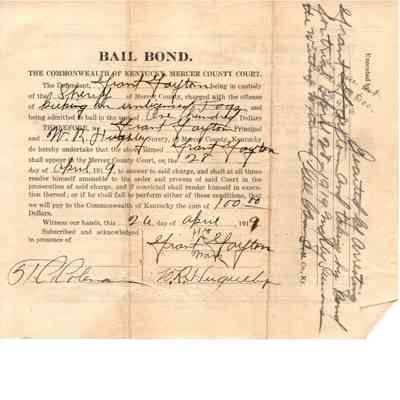 BAIL BOND.
THE COMMONWEALTH OF KENTUCKY, MERCER COUNTY COURT.
The Defendant, Grant Gayton being in custody
of the Sheriff of Mercer County, charged with the offense
of Keeping an unlicensed Dog and
being admitted to bail in the sum of One Hundred Dollars
THEREFORE, We Grant Gayton Principal
and W. R. Huguely Surety
do hereby undertake that the above named Grant Gayton
shall appear in the Mercer County Court, on the 28
day of April 1919, to answer to said charge, and shall at all times
render himself amenable to the order and process of said Court in the
prosecution of said charge, and if convicted shall render himself in execu-
tion thereof; or if he shall fail to perform either of these conditions, that
we will pay to the Commonwealth of Kentucky the sum of 100.00
Dollars.
Witness our hands, this 26 day of April 1919
Subscribed and acknowledged
in presence of
His
Grant Gayton
Mark
T C Coleman
W. R. Huguely
Executed by
Executed by Arresting
Grant Gayton and taking by Bond
for trial April